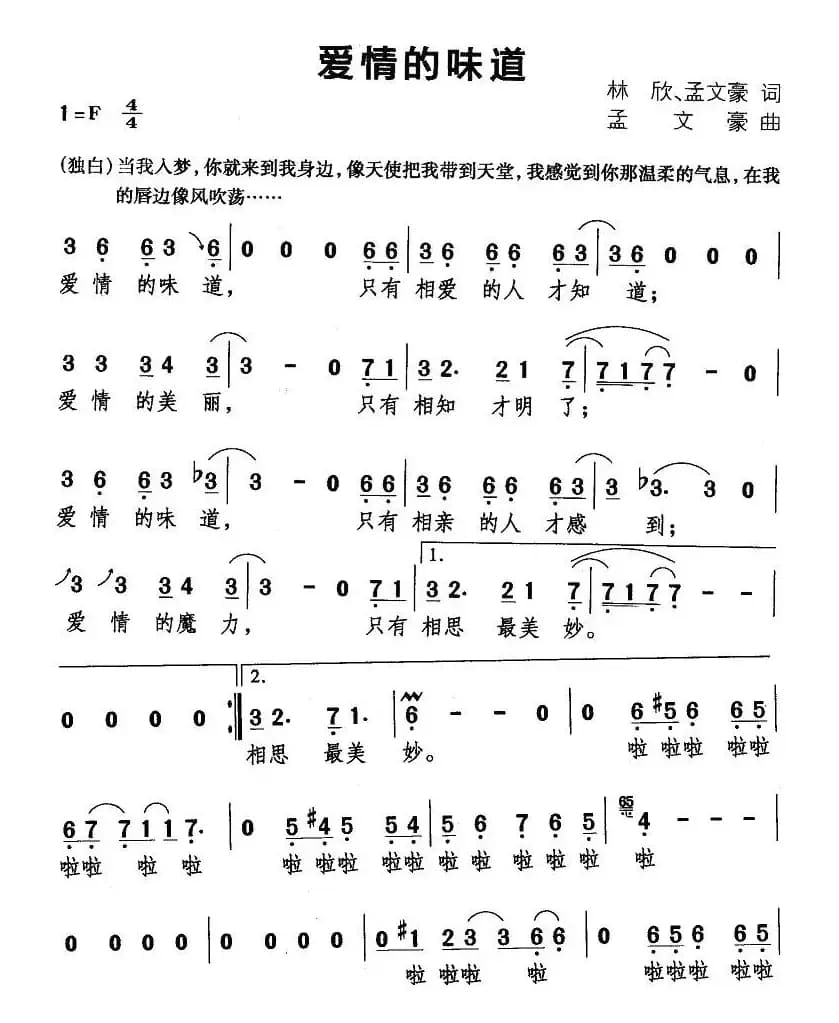 爱情的味道
林 欣、孟文豪 词
1=F 4/4
孟 文 豪 曲
(独白)当我入梦，你就来到我身边，像天使把我带到天堂，我感觉到你那温柔的气息，在我
的唇边像风吹荡……
3 6 6 3 6 | 0 0 0 6 6 | 3 6 6 6 6 3 | 3 6 0 0 0 |
爱 情 的 味 道， 只有 相爱 的人 才知 道；
3 3 3 4 3 | 3 - 0 7 1 | 3 2. 2 1 7 | 7 1 7 7 - 0 |
爱 情 的 美 丽， 只有 相知 才明 了；
3 6 6 3 ♭3 | 3 - 0 6 6 | 3 6 6 6 6 3 | ♭3. 3 0 |
爱 情 的 味 道， 只有 相亲 的人 才感 到；
1.
3 3 3 4 3 | 3 - 0 7 1 | 3 2. 2 1 7 | 7 1 7 7 - - |
爱 情 的 魔 力， 只有 相思 最美 妙。
2.
0 0 0 0 :| 3 2. 7 1. | 6 - - 0 | 0 6 ♯5 6 6 5 |
相思 最美 妙。 啦 啦啦 啦啦
6 7 7 1 1 7. | 0 5 ♯4 5 5 4 | 5 6 7 6 5 | 65 4 - - - |
啦啦 啦 啦 啦 啦啦 啦啦 啦 啦 啦 啦 啦 啦
0 0 0 0 | 0 0 0 0 | 0 ♯1 2 3 3 6 6 | 0 6 5 6 6 5 |
啦 啦啦 啦 啦 啦啦 啦啦